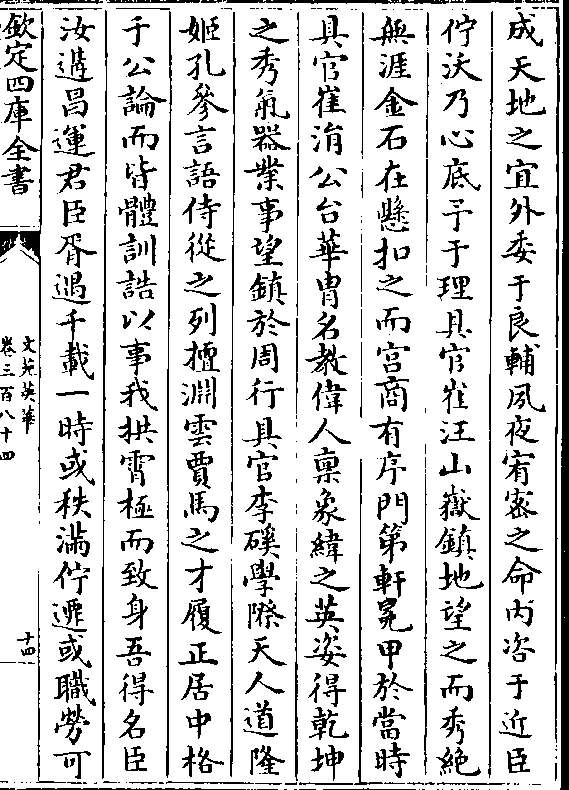 成天地之宜外委于良輔夙夜宥宻之命内咨于近臣
佇沃乃心底予于理具官崔汪山嶽鎮地望之而秀絶
無涯金石在懸扣之而宫商有序門第軒冕甲於當時
具官崔涓公台華胄名教偉人禀象緯之英姿得乾坤
之秀氣器業事望鎮於周行具官李磎學際天人道隆
姬孔參言語侍從之列擅淵雲賈馬之才履正居中格
于公論而皆體訓誥以事我拱霄極而致身吾得名臣
汝遘昌運君臣胥遇千載一時或秩滿佇遷或職勞可
欽定四庫全書
文苑英華
卷三百八十四
十四